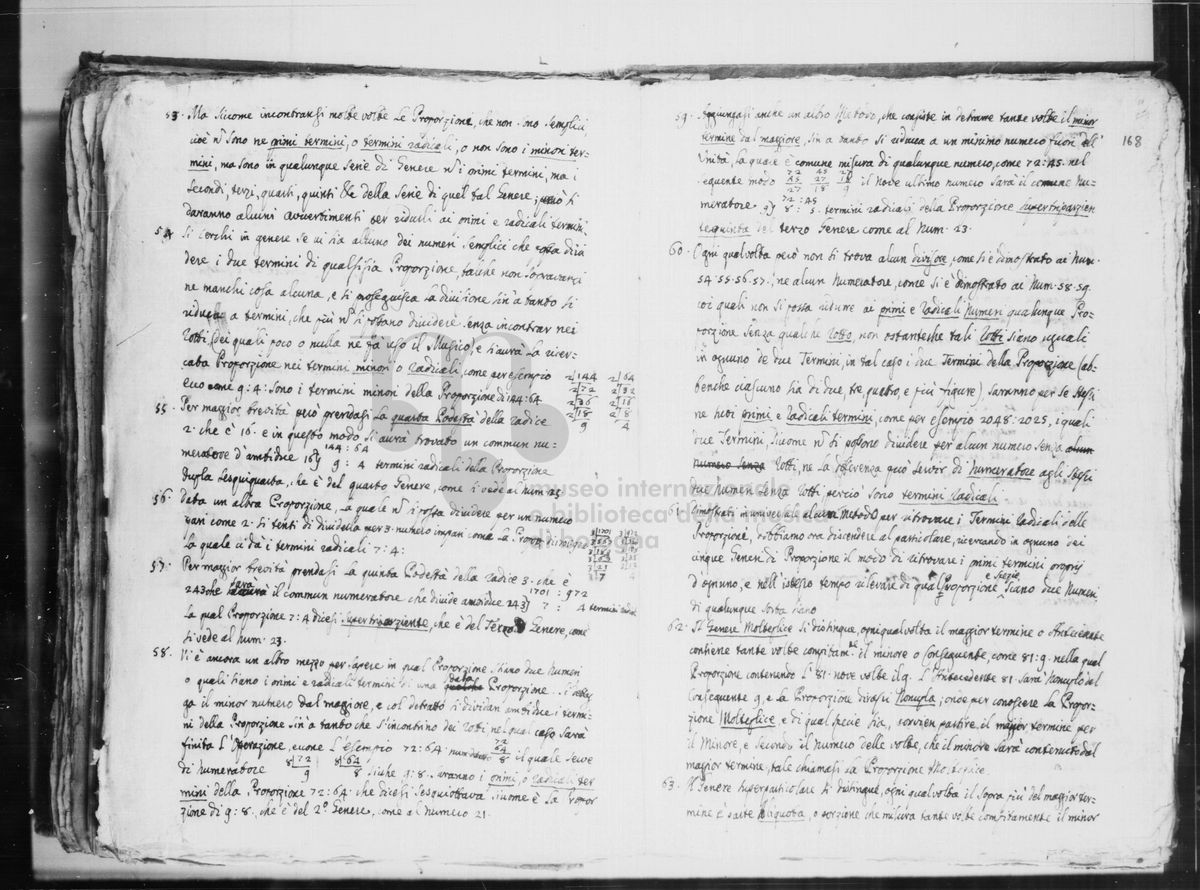 53. Ma siccome incontransi molte volte le Proporzione, che non sono semplici
cioè ñ sono ne primi termini, o termini radicali, o non sono i minori ter=
mini, ma sono in qualunque serie di Genere ñ i primi termini, ma i
secondi, terzi, quarti, quinti &c della serie di quel tal Genere; però si
daranno alcuni avvertimenti per ridurli ai primi e radicali termini.
54. Si cerchi in genere se vi sia alcuno dei numeri semplici che divi
dere i due termini di qualsisia Proporzione, tal che non sopravanzi
ne manchi cosa alcuna, e si proseguisca la divisione sin'a tanto si
riduca a termini, che più ñ si possano dividere senza incontrar nei
Rotti (dei quali poco o nulla ne fà uso il Musico), e s'avrà la ricer-
cata Proporzione nei termini minori o radicali, come per esempio
ecco come 9:4: sono i termini minori della Proporzione di 144:64.
2|144 2|64
2|72 2|32
2|36 2|16
2|18 2|8
9 4
55. Per maggior brevità però prendasi la quarta Podestà della radice
2. che è 16. e in questo modo si aurà trovato un commun nu=
meratore d'ambidue 16) 144:64
9:4 termini radicali della Proporzione
dupla sesquiquarta, che è del quarto Genere, come si vede al num. 25
56. Data un altra Proporzione, la quale ñ si possa dividere per un numero
pari come 2. si tenti di dividerla per 3. numero impari come la Propor.
la quale ci dà i termini radicali 7:4:
57. Per maggior brevità prendasi la quinta Podestà della radice 3. che è
243 che sarà il commun numeratore che divide amòidue 243) 1701:972
7:4 termini radicali
la qual Proporzione 7:4 dicesi supertriparziente, che è del Terzo Genere, come
si vede al num. 23.
58. Vi è ancora un altro mezzo per sapere in qual Proporzione siano due Numeri
o quali siano i primi e radicali termini di una data Proporzione. Si detrag
ga il minor numero dal maggiore, e col detratto si dividan ambidue i termi=
ni della Proporzione sin'a tanto che s'incontrino dei rotti, nel qual caso sarà
finita l'operazione, eccone l'esempio 72:64 72
64
8 il quale serve
di numeratore 8|72 8|64
9 8 Siche 9:8. saranno i primi, o radicali ter
mini della Proporzione 72:64: che dicesi sesquiottava siccome è la Propor
zione di 9:8, che è del 2º Genere, come al numero 21.
168
59. Aggiungasi anche un altro Metodo, che consiste in detrarre tante volte il minor
termine dal maggiore, sin a tanto si riduca a un minimo numero fuori dell'
Unità, la quale è comune misura di qualunque numero, come 72:45. nel
seguente modo 72 45 27
45 27 18
27 18 9 il Nove ultimo numero sarà il comune Nu=
meratore. 9) 72:45
8:5. termini radicali della Proporzione supertriparzien
tequinta del terzo Genere come al Num. 23.
60. Ogni qualvolta però non si trova alcun divisore, come si è dimostrato ai Num.
54.55.56.57., ne alcun Numeratore, come si è dimostrato ai Num. 58.59.
coi quali non si possa ridurre ai primi e radicali Numeri qualunque Pro-
porzione senza qualche Rotto, non ostanteche tali Rotti siano uguali
in ognuno de due Termini, in tal caso i due Termini della Proporzione (ab
benche ciascuno sia di due tre, quattro, e più figure) saranno per se stessi
primi e radicali termini, come per esempio 2048:2025, i quali
due Termini, siccome ñ si possono dividere per alcun numero senza alcun
numero senza Rotti, ne la differenza può servir di numeratore agli stessi
due Numeri senza Rotti perciò sono termini radicali.
61. Dimostrati in universal alcuni Metodi per ritrovare i Termini radicali delle
Proporzione, dobbiamo ora discendere al particolare, ricercando in ognuno dei
cinque Generi di Proporzione il modo di ritrovare i primi termini proprj
d'ognuno, e nell'istesso tempo rilevare di qual Proporzione e specie siano due Numeri
di qualunque sorta siano
62. Il Genere Molteplice si distingue, ogni qual volta il maggior termine o Antecedente
contiene tante volte compitam.te il minore o Conseguente, come 81:9. nella qual
Proporzione contenendo l'81. nove volte il 9. l'Antecedente 81. sarà Nonuplo del
Conseguente 9. e la Proporzione dirassi Nonupla; onde per conoscere la Propor=
zione Molteplice e di qual specie sia, convien partire il maggior termine per
il Minore, e secondo il numero delle volte, che il minore sarà contenuto dal
maggior termine, tale chiamasi la Proporzione Molteplice.
63. Il Genere superparticolare si distingue, ogni qual volta il sopra più del maggior ter=
mine è parte Aliquota, o porzione che misura tante volte compitamente il minor
museo internazionale
e biblioteca della musica
di bologna